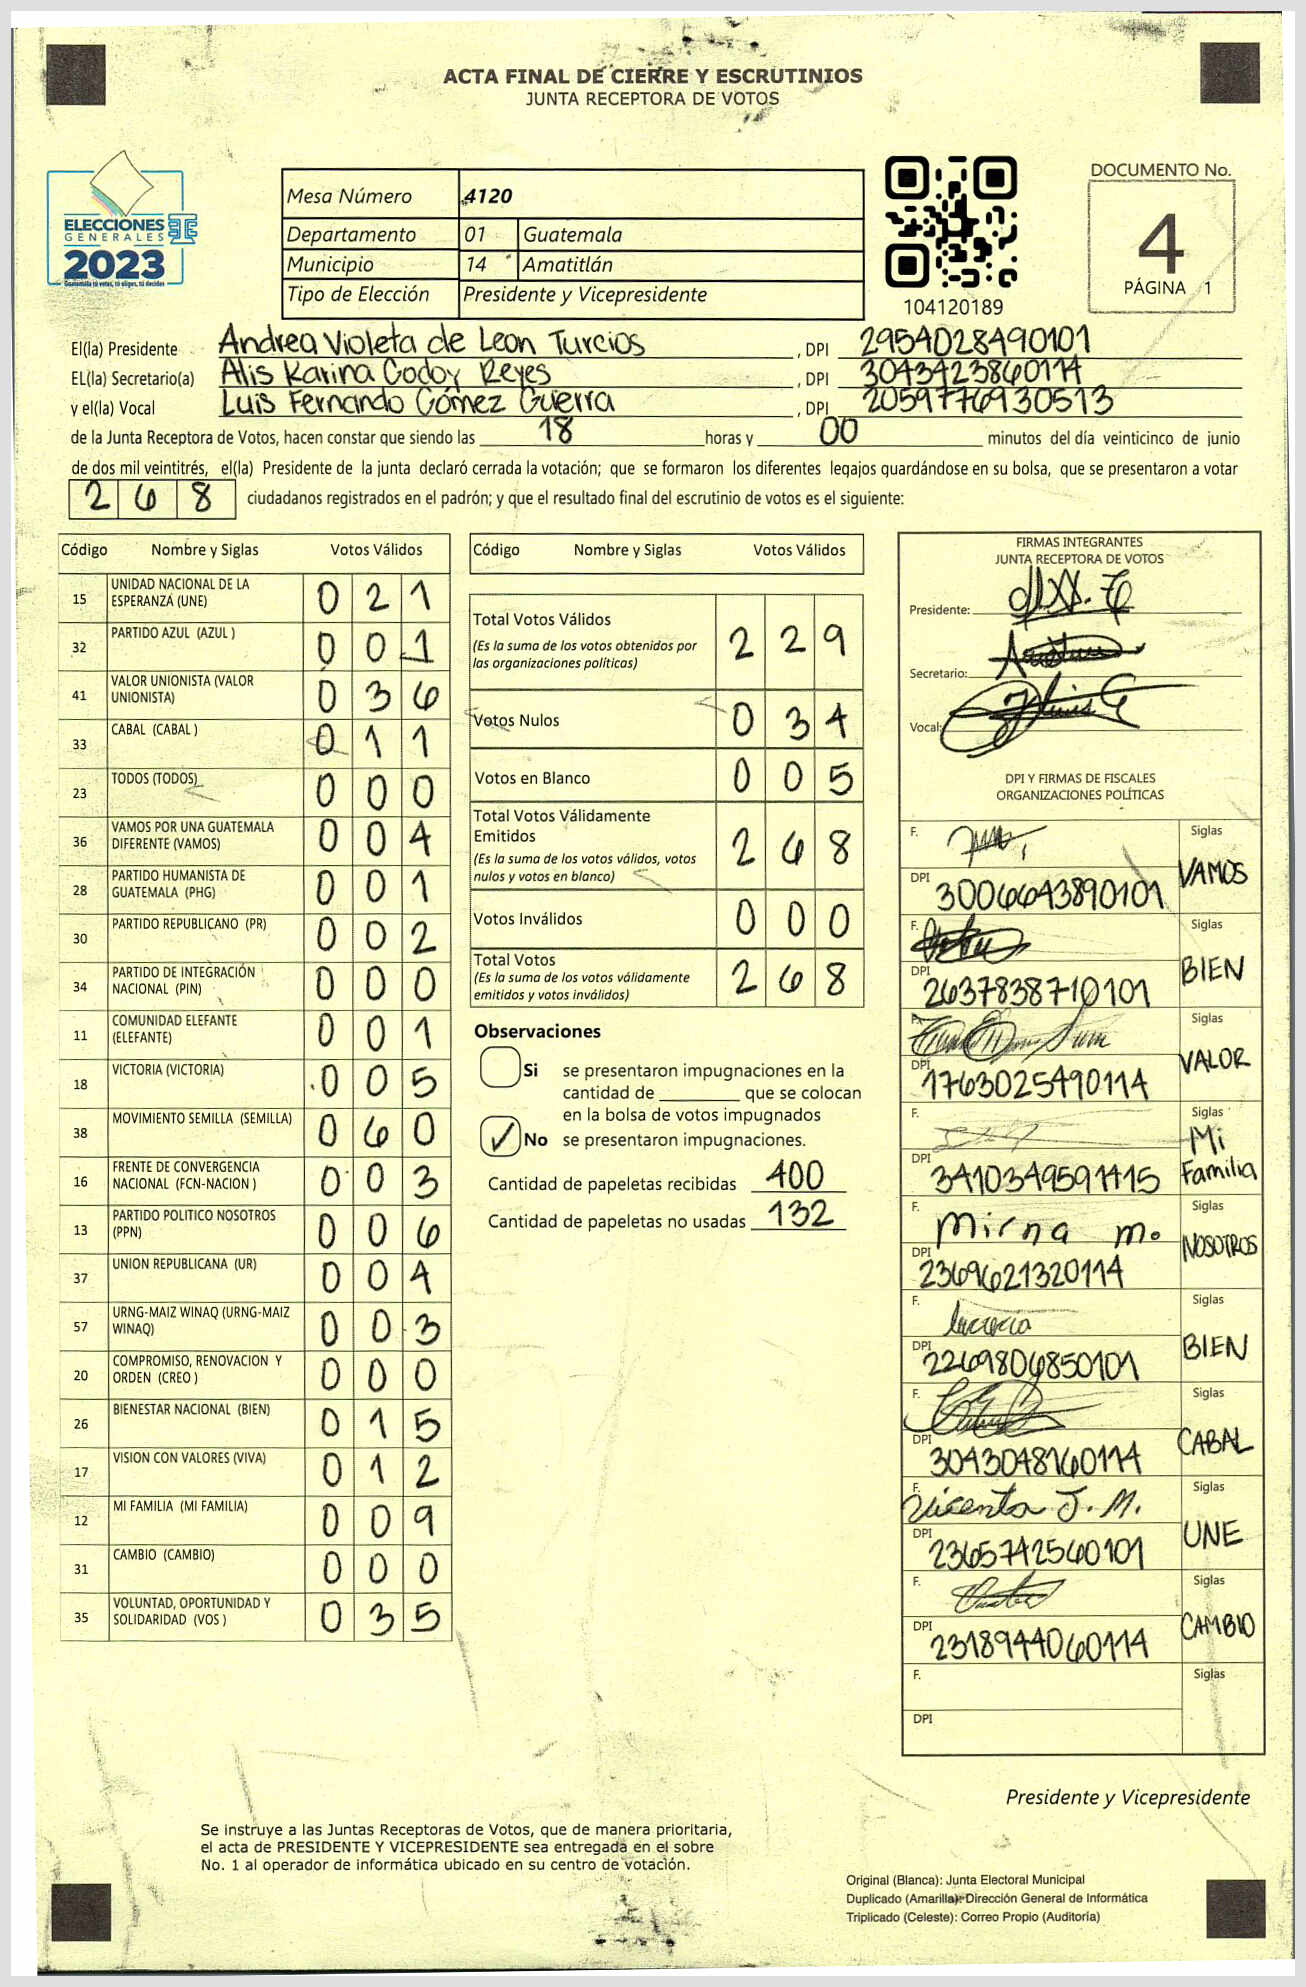 ACTA FINAL DE CIERRE Y ESCRUTINIOS
JUNTA RECEPTORA DE VOTOS
ELECCIONES
GENERALES
2023
Guatemala tú votas, tú eliges, tú decides
Mesa Número 4120
Departamento 01 Guatemala
Municipio 14 Amatitlán
Tipo de Elección Presidente y Vicepresidente
104120189
DOCUMENTO No.
4
PÁGINA 1
El(la) Presidente Andrea Violeta de Leon Turcios, DPI 2954028490101
EL(la) Secretario(a) Alis Karina Godoy Reyes, DPI 3043423860114
y el(la) Vocal Luis Fernando Gómez Guerra, DPI 2059776930513
de la Junta Receptora de Votos, hacen constar que siendo las 18 horas y 00 minutos del día veinticinco de junio
de dos mil veintitrés, el(la) Presidente de la junta declaró cerrada la votación; que se formaron los diferentes legajos guardándose en su bolsa, que se presentaron a votar
268 ciudadanos registrados en el padrón; y que el resultado final del escrutinio de votos es el siguiente:
Código Nombre y Siglas Votos Válidos
15 UNIDAD NACIONAL DE LA ESPERANZA (UNE) 021
32 PARTIDO AZUL (AZUL ) 001
41 VALOR UNIONISTA (VALOR UNIONISTA) 036
33 CABAL (CABAL ) 011
23 TODOS (TODOS) 000
36 VAMOS POR UNA GUATEMALA DIFERENTE (VAMOS) 004
28 PARTIDO HUMANISTA DE GUATEMALA (PHG) 001
30 PARTIDO REPUBLICANO (PR) 002
34 PARTIDO DE INTEGRACIÓN NACIONAL (PIN) 000
11 COMUNIDAD ELEFANTE (ELEFANTE) 001
18 VICTORIA (VICTORIA) 005
38 MOVIMIENTO SEMILLA (SEMILLA) 060
16 FRENTE DE CONVERGENCIA NACIONAL (FCN-NACION ) 003
13 PARTIDO POLITICO NOSOTROS (PPN) 006
37 UNION REPUBLICANA (UR) 004
57 URNG-MAIZ WINAQ (URNG-MAIZ WINAQ) 003
20 COMPROMISO, RENOVACION Y ORDEN (CREO ) 000
26 BIENESTAR NACIONAL (BIEN) 015
17 VISION CON VALORES (VIVA) 012
12 MI FAMILIA (MI FAMILIA) 009
31 CAMBIO (CAMBIO) 000
35 VOLUNTAD, OPORTUNIDAD Y SOLIDARIDAD (VOS ) 035
Código Nombre y Siglas Votos Válidos
Total Votos Válidos 229
(Es la suma de los votos obtenidos por
las organizaciones políticas)
Votos Nulos 034
Votos en Blanco 005
Total Votos Válidamente
Emitidos 268
(Es la suma de los votos válidos, votos
nulos y votos en blanco)
Votos Inválidos 000
Total Votos 268
(Es la suma de los votos válidamente
emitidos y votos inválidos)
Observaciones
Si se presentaron impugnaciones en la
cantidad de ________ que se colocan
en la bolsa de votos impugnados
✓ No se presentaron impugnaciones.
Cantidad de papeletas recibidas 400
Cantidad de papeletas no usadas 132
FIRMAS INTEGRANTES
JUNTA RECEPTORA DE VOTOS
Presidente:
Secretario:
Vocal:
DPI Y FIRMAS DE FISCALES
ORGANIZACIONES POLÍTICAS
F. Siglas
DPI 3006643890101 VAMOS
F. Siglas
DPI 2637838710101 BIEN
F. Siglas
DPI 1763025490114 VALOR
F. Siglas
DPI 3410349591415 Mi Familia
F. Mirna m. Siglas
DPI 2369621320114 NOSOTROS
F. Lucrecia Siglas
DPI 2269806850101 BIEN
F. Siglas
DPI 3043048160114 CABAL
F. Vicenta J. M. Siglas
DPI 2365742560101 UNE
F. Siglas
DPI 2318944060114 CAMBIO
F. Siglas
DPI
Presidente y Vicepresidente
Se instruye a las Juntas Receptoras de Votos, que de manera prioritaria,
el acta de PRESIDENTE Y VICEPRESIDENTE sea entregada en el sobre
No. 1 al operador de informática ubicado en su centro de votación.
Original (Blanca): Junta Electoral Municipal
Duplicado (Amarilla): Dirección General de Informática
Triplicado (Celeste): Correo Propio (Auditoría)